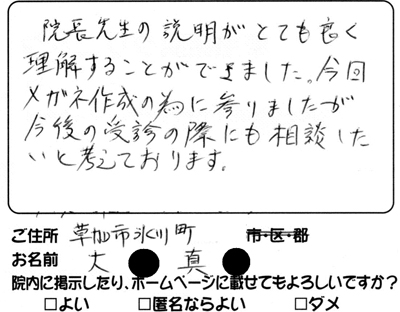 院長先生の説明がとても良く
理解することができました。今回
メガネ作成の為に参りましたが
今後の受診の際にも相談した
いと考えております。
ご住所 草加市氷川町 市・区・郡
お名前 大●真●
院内に掲示したり、ホームページに載せてもよろしいですか?
□よい □匿名ならよい □ダメ